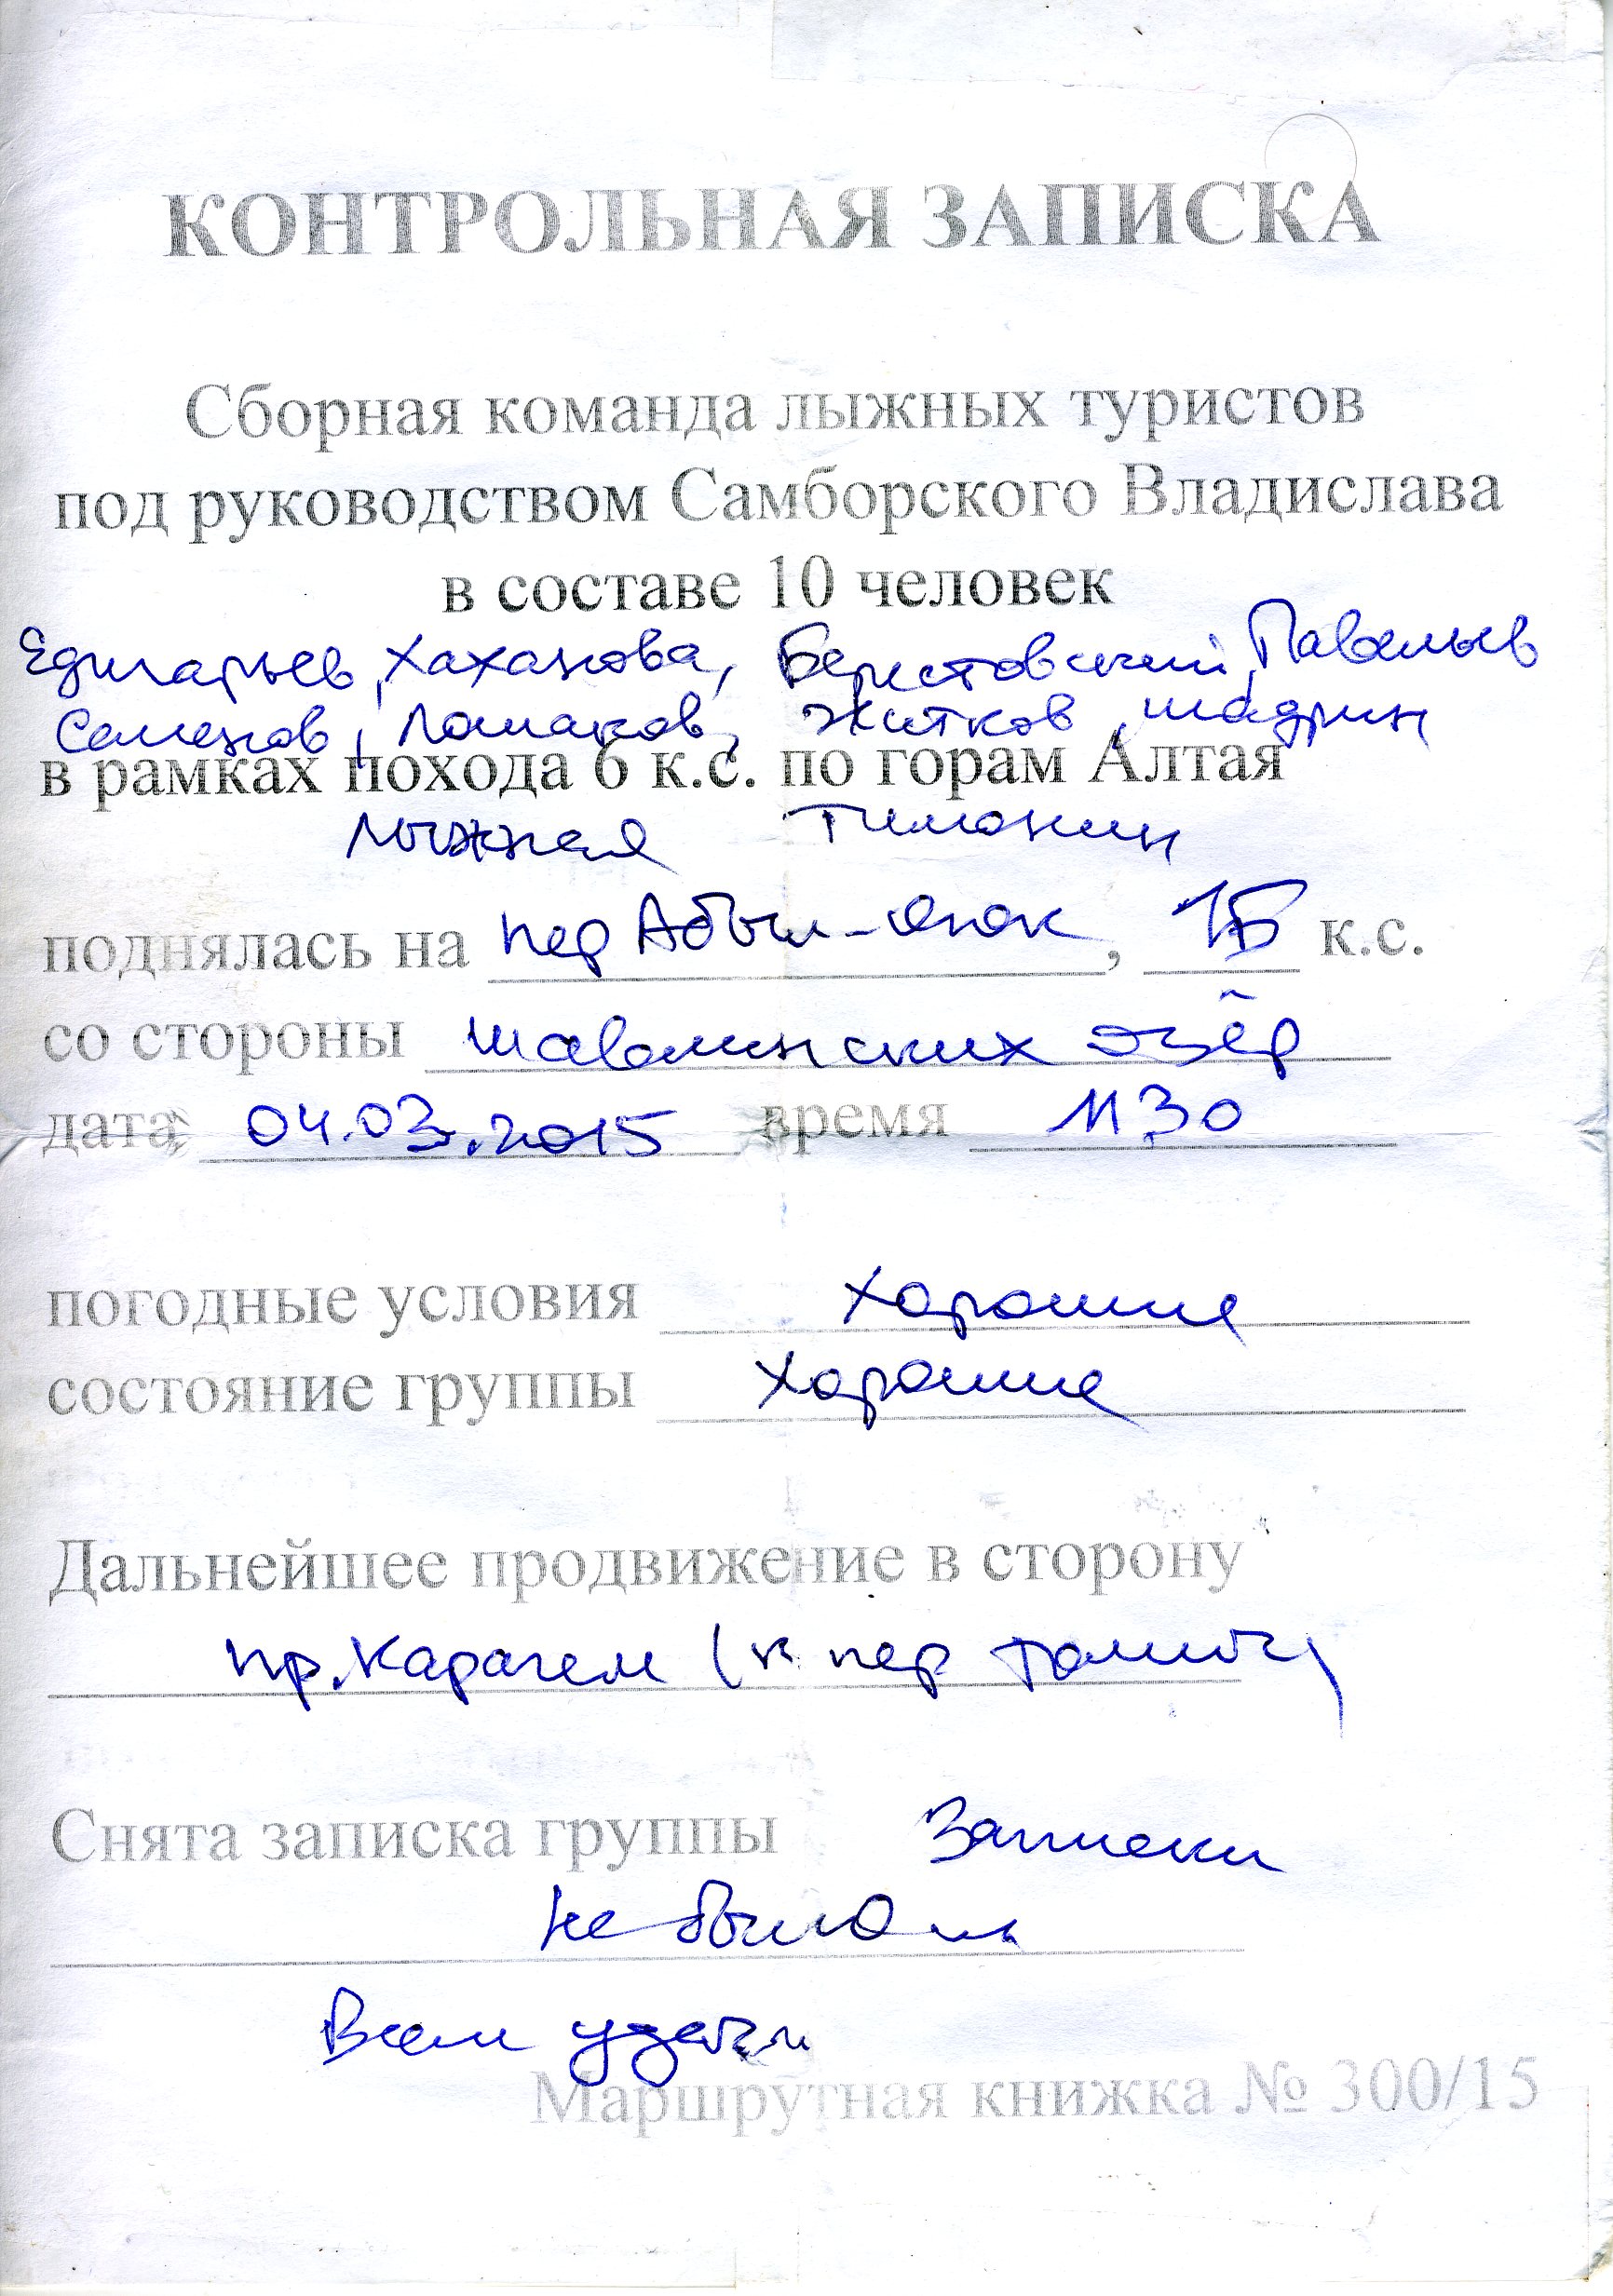 КОНТРОЛЬНАЯ ЗАПИСКА
Сборная команда лыжных туристов
под руководством Самборского Владислава
в составе 10 человек
Едигарьев, Хаханова, Берестовский, Павельев
Семенов, Ломаков, Житков, Шадрин
в рамках похода 6 к.с. по горам Алтая
лыжная Тимонин
поднялась на пер Абыл-Оюк, 1Б к.с.
со стороны Шавлинских озёр
дата 04.03.2015 время 11 30
погодные условия хорошие
состояние группы хорошие
Дальнейшее продвижение в сторону
пр. Карагем (к пер Томич)
Снята записка группы Записки
не было
Всем удачи
Маршрутная книжка № 300/15